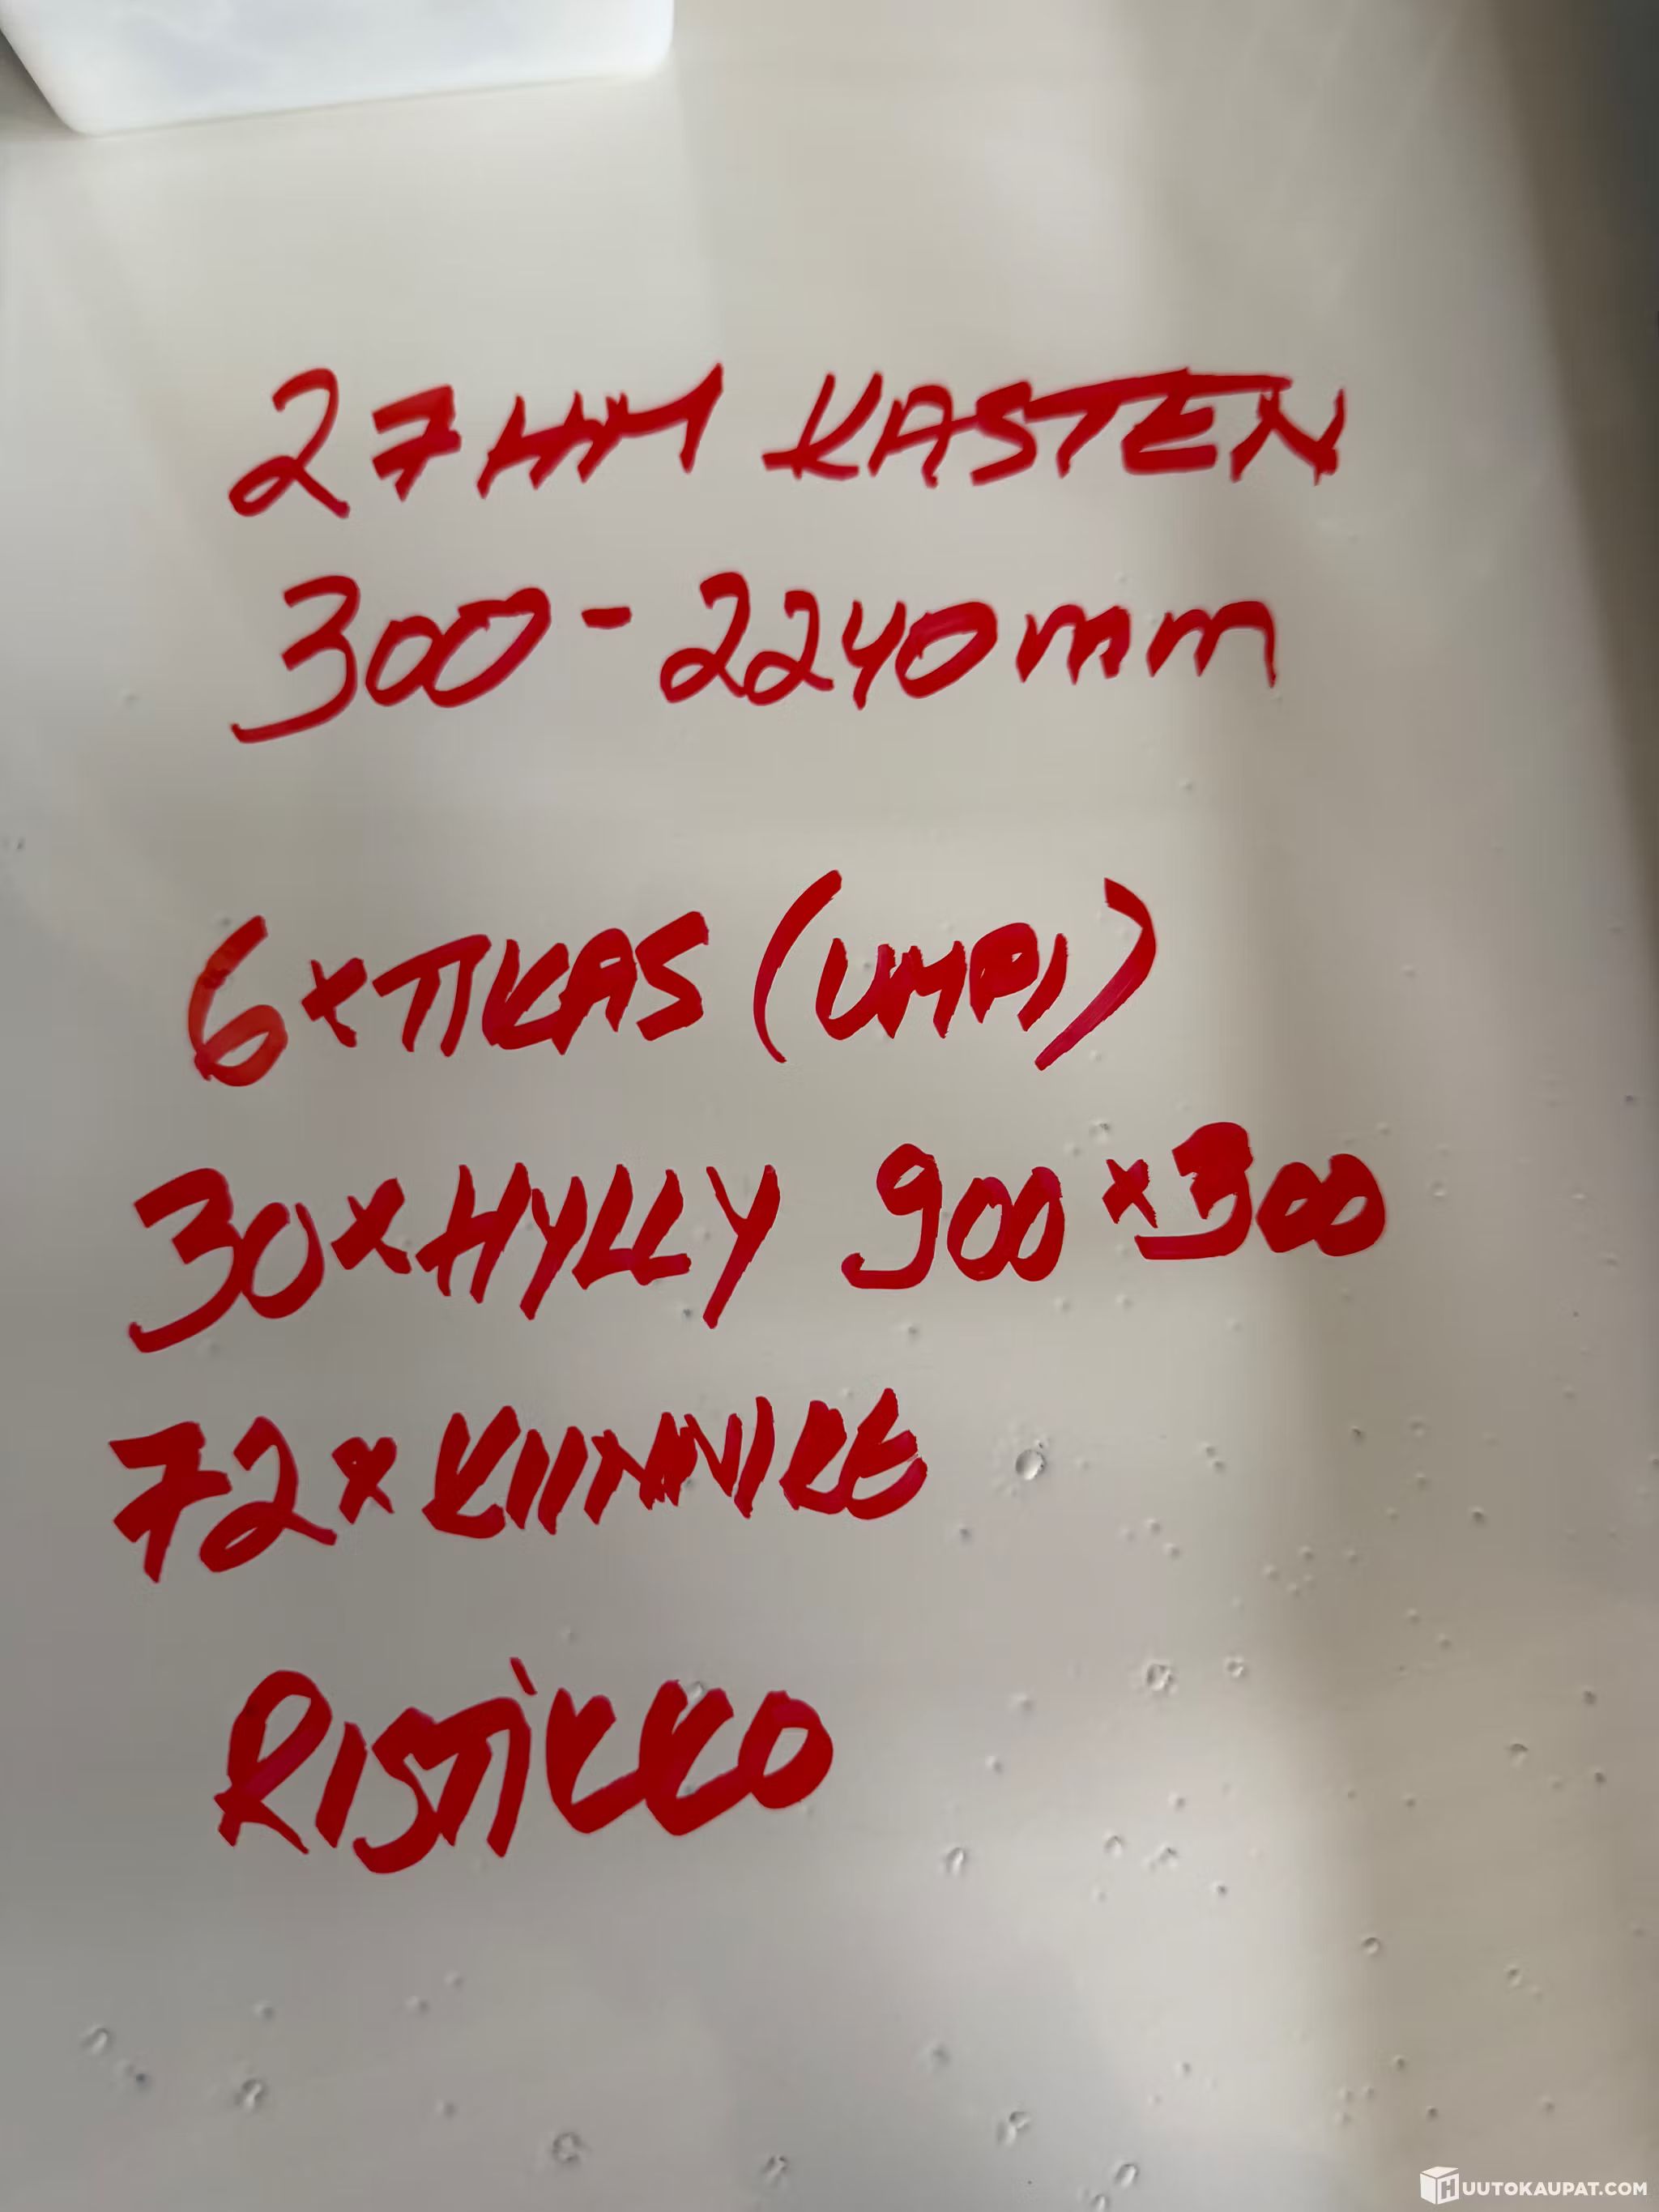 27HM KASTEN
300-2240mm
6xTIKAS (UMPI)
30xHYLLY 900x300
72xKIINNIKE
RISTIKKO
HUUTOKAUPAT.COM